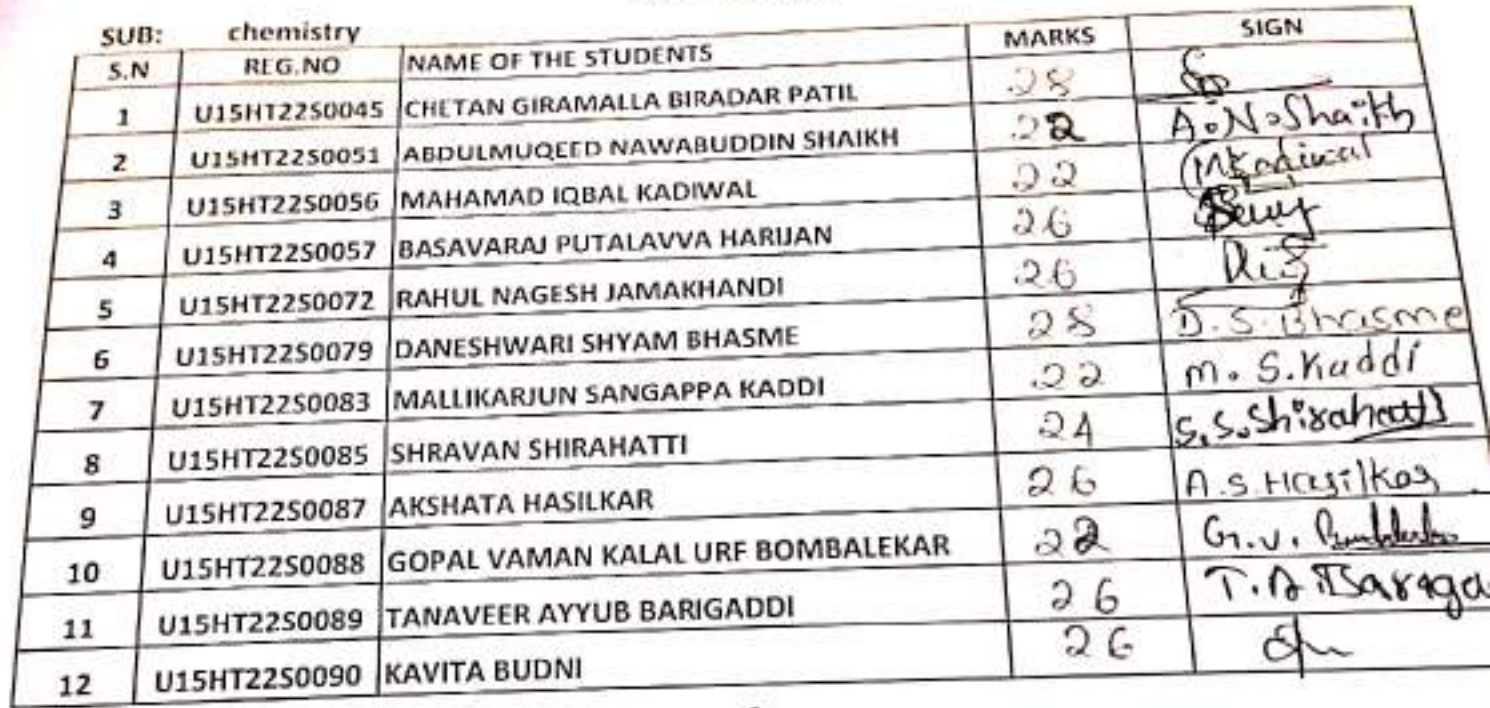 SUB: chemistry
S.N REG.NO NAME OF THE STUDENTS MARKS SIGN
1 U15HT22S0045 CHETAN GIRAMALLA BIRADAR PATIL 28
2 U15HT22S0051 ABDULMUQEED NAWABUDDIN SHAIKH 22 A.N.Shaikh
3 U15HT22S0056 MAHAMAD IQBAL KADIWAL 22 MKadiwal
4 U15HT22S0057 BASAVARAJ PUTALAVVA HARIJAN 26
5 U15HT22S0072 RAHUL NAGESH JAMAKHANDI 26
6 U15HT22S0079 DANESHWARI SHYAM BHASME 28 D.S.Bhasme
7 U15HT22S0083 MALLIKARJUN SANGAPPA KADDI 22 M.S.Kaddi
8 U15HT22S0085 SHRAVAN SHIRAHATTI 24 S.S.Shirahatti
9 U15HT22S0087 AKSHATA HASILKAR 26 A.S.Hasilkar
10 U15HT22S0088 GOPAL VAMAN KALAL URF BOMBALEKAR 22 G.V.
11 U15HT22S0089 TANAVEER AYYUB BARIGADDI 26 T.A Bariga
12 U15HT22S0090 KAVITA BUDNI 26